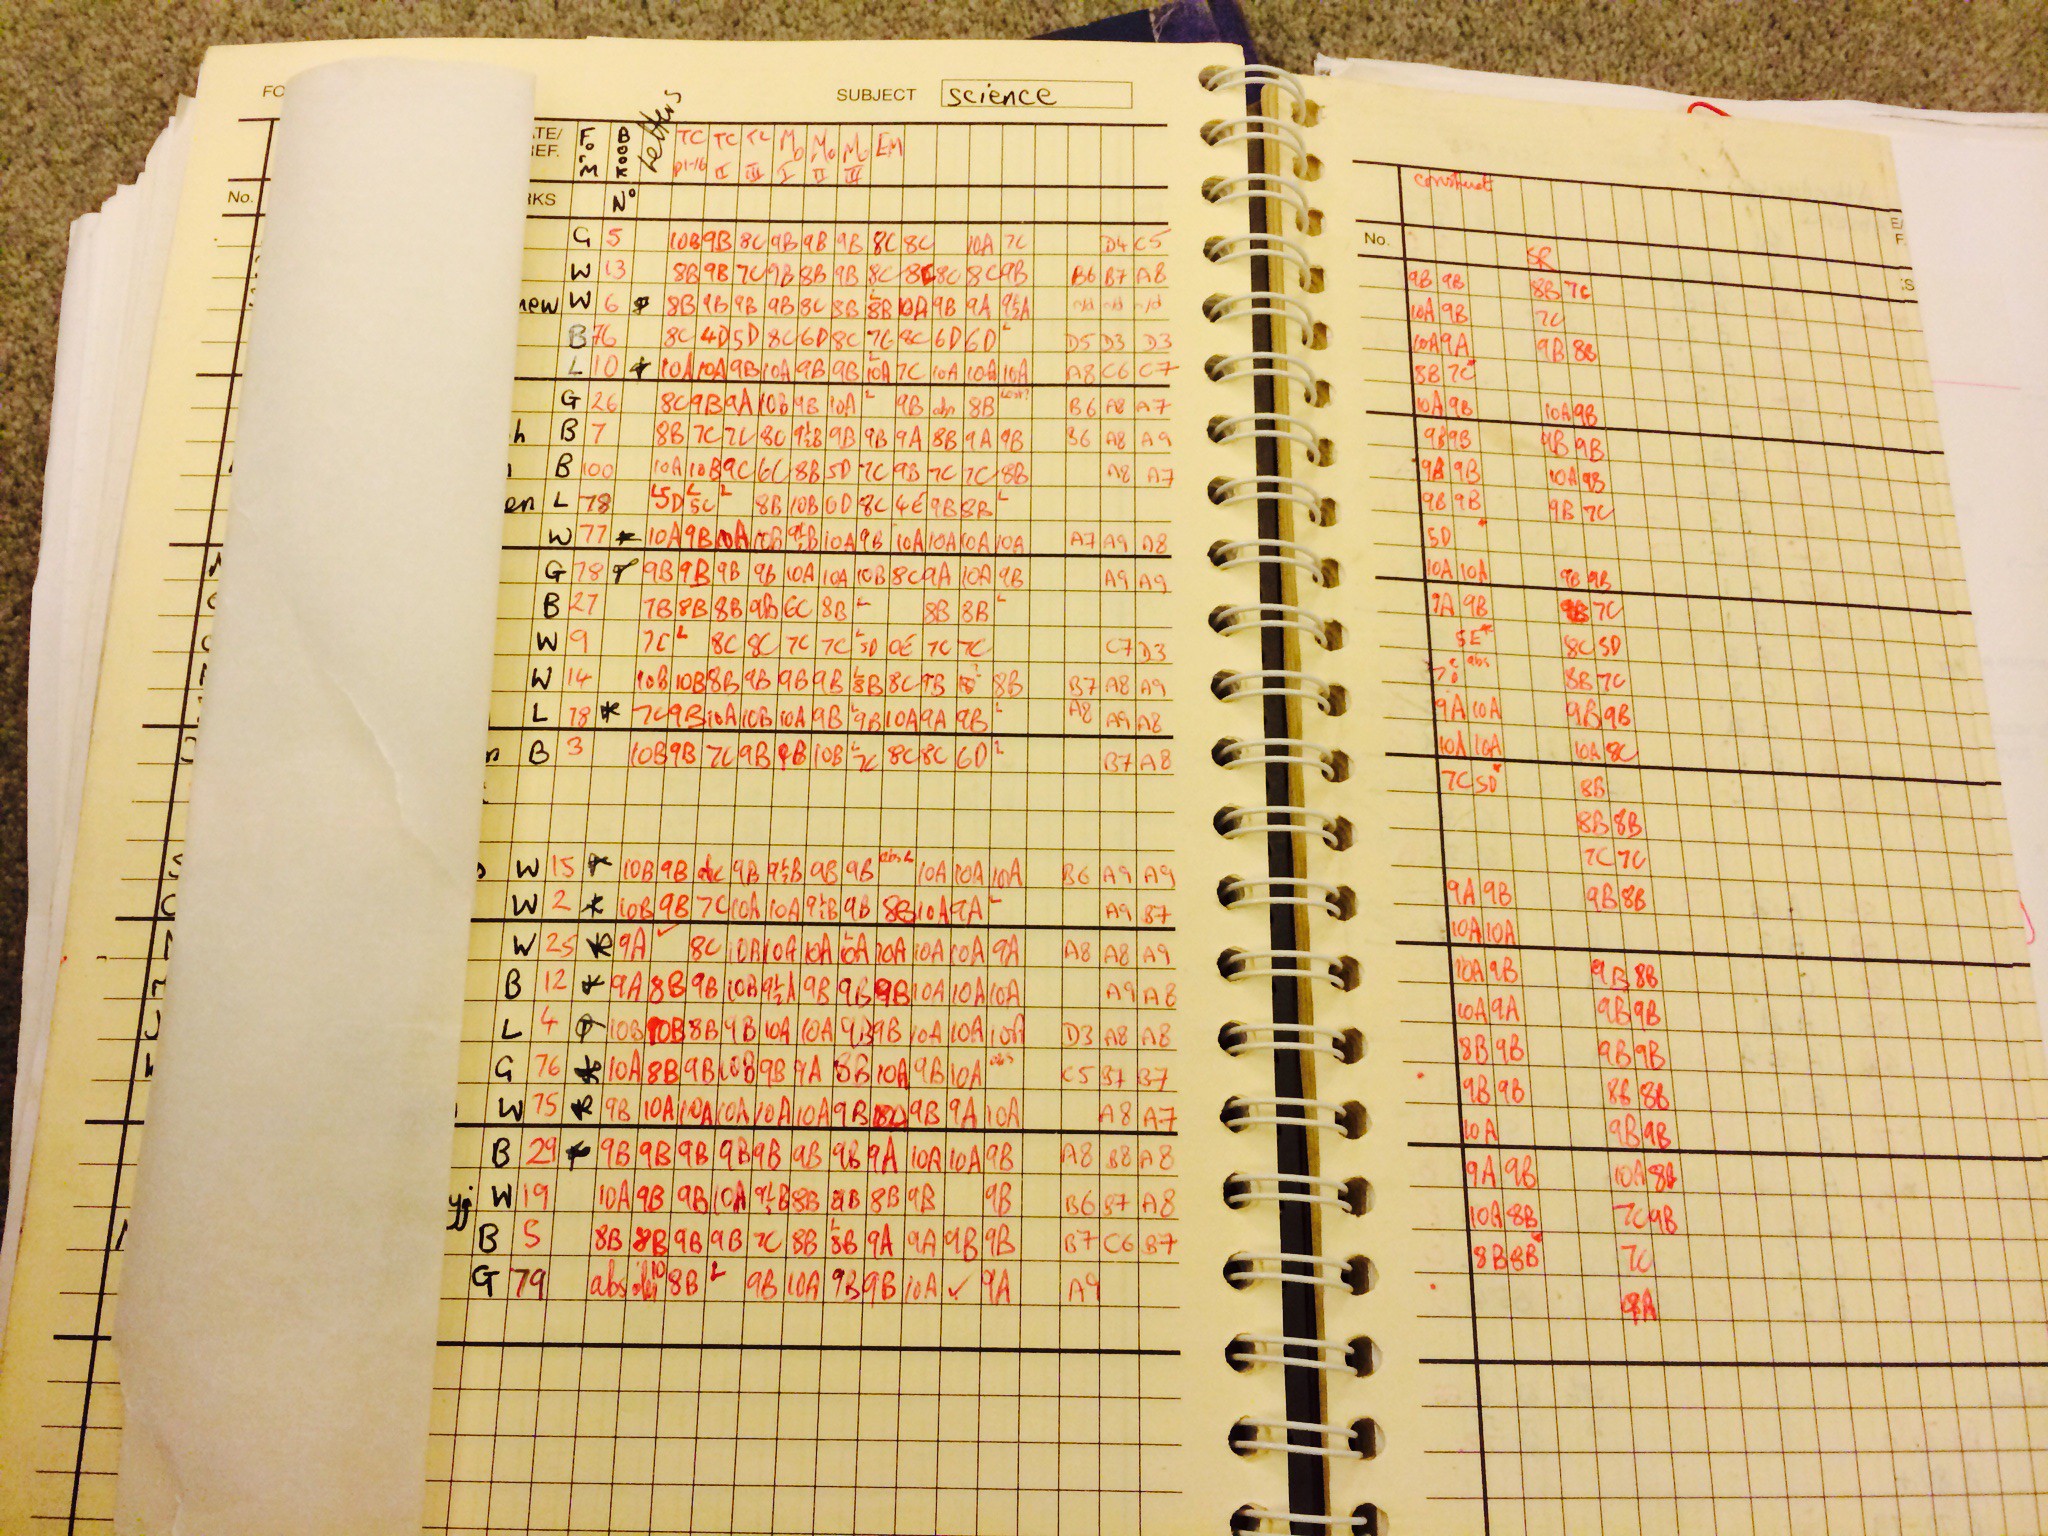 FO SUBJECT science
ATE/ REF. FORM BOOK Letters TC TC TC Mo Mo Mo EM
p1-16 II III I II III
No. RKS No
construct
No. SR
G 5 10B 9B 8C 9B 9B 9B 8C 8C 10A 7C D4 C5
W 13 8B 9B 7C 9B 8B 9B 8C 8C 8C 9B B6 B7 A8
new W 6 8B 9B 9B 9B 8C 8B 8B 10A 9B 9A
B 76 8C 4D 5D 8C 6D 8C 7C 8C 6D 6D L D5 D3 D3
L 10 10A 10A 9B 10A 9B 9B 10A 7C 10A 10A 10A A8 C6 C7
G 26 8C 9B 9A 10B 9B 10A L 9B abs 8B B6 A8 A7
h B 7 8B 7C 7C 8C 9½B 9B 9B 9A 8B 9A 9B B6 A8 A9
B 100 10A 10B 9C 6C 8B 5D 7C 9B 7C 7C 8B A8 A7
en L 78 L5D L5C L 8B 10B 6D 8C 4E 9B 8B L
W 77 * 10A 9B 10A 10B 9½B 10A 9B 10A 10A 10A 10A A7 A9 A8
G 78 9B 9B 9B 9B 10A 10A 10B 8C 9A 10A 9B A9 A9
B 27 7B 8B 8B 9B 6C 8B L 8B 8B L
W 9 7C L 8C 8C 7C 7C L5D 0E 7C 7C C7 D3
W 14 10B 10B 8B 9B 9B 9B L8B 8C 9B 8B B7 A8 A9
L 78 * 7C 9B 10A 10B 10A 9B L9B 10A 9A 9B L A8 A9 A8
n B 3 10B 9B 7C 9B 9B 10B L7C 8C 8C 6D L B7 A8
W 15 * 10B 9B 9B 9½B 9B 9B abs L 10A 10A 10A B6 A9 A9
W 2 * 10B 9B 7C 10A 10A 9½B 9B 8B 10A 9A L A9 B7
W 25 * 9A ✓ 8C 10A 10A 10A 10A 10A 10A 10A 9A A8 A8 A9
B 12 * 9A 8B 9B 10A 9½A 9B 9B 9B 10A 10A 10A A9 A8
L 4 10B 10B 8B 9B 10A 10A 9B 9B 10A 10A 10A D3 A8 A8
G 76 * 10A 8B 9B 10B 9B 9A 8B 10A 9B 10A abs C5 B7 B7
W 75 * 9B 10A 10A 10A 10A 10A 9B 9B 9A 10A A8 A7
B 29 * 9B 9B 9B 9B 9B 9B 9B 9A 10A 10A 9B A8 B8 A8
yj W 19 10A 9B 9B 10A 9½B 8B 9B 8B 9B 9B B6 B7 A8
B 5 8B 8B 9B 9B 7C 8B L8B 9A 9A 9B 9B B7 C6 B7
G 79 abs 8B L 9B 10A 9B 9B 10A ✓ 9A A9
9B 9B 8B 7C
10A 9B 7C
10A 9A 9B 8B
8B 7C
10A 9B 10A 9B
9B 9B 9B 9B
9B 9B 10A 9B
9B 9B 9B 7C
5D *
10A 10A 9B 9B
9A 9B 9B 7C
5E * 8C 5D
abs 8B 7C
9A 10A 9B 9B
10A 10A 10A 8C
7C 5D 8B
8B 8B
7C 7C
9A 9B 9B 8B
10A 10A
10A 9B 9B 8B
10A 9A 9B 9B
8B 9B 9B 9B
9B 9B 8B 8B
10A 9B 9B
9A 9B 10A
10A 8B 7C 9B
8B 8B 7C